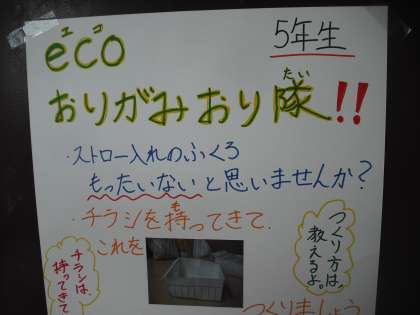 エコ
eco
5年生
たい
おりがみおり隊!!
・ストロー入れのふくろ
もったいないと思いませんか?
も
・チラシを持ってきて、
これを
つくりましょう
つくり方は、
教えるよ。
チラシは、
持ってきて